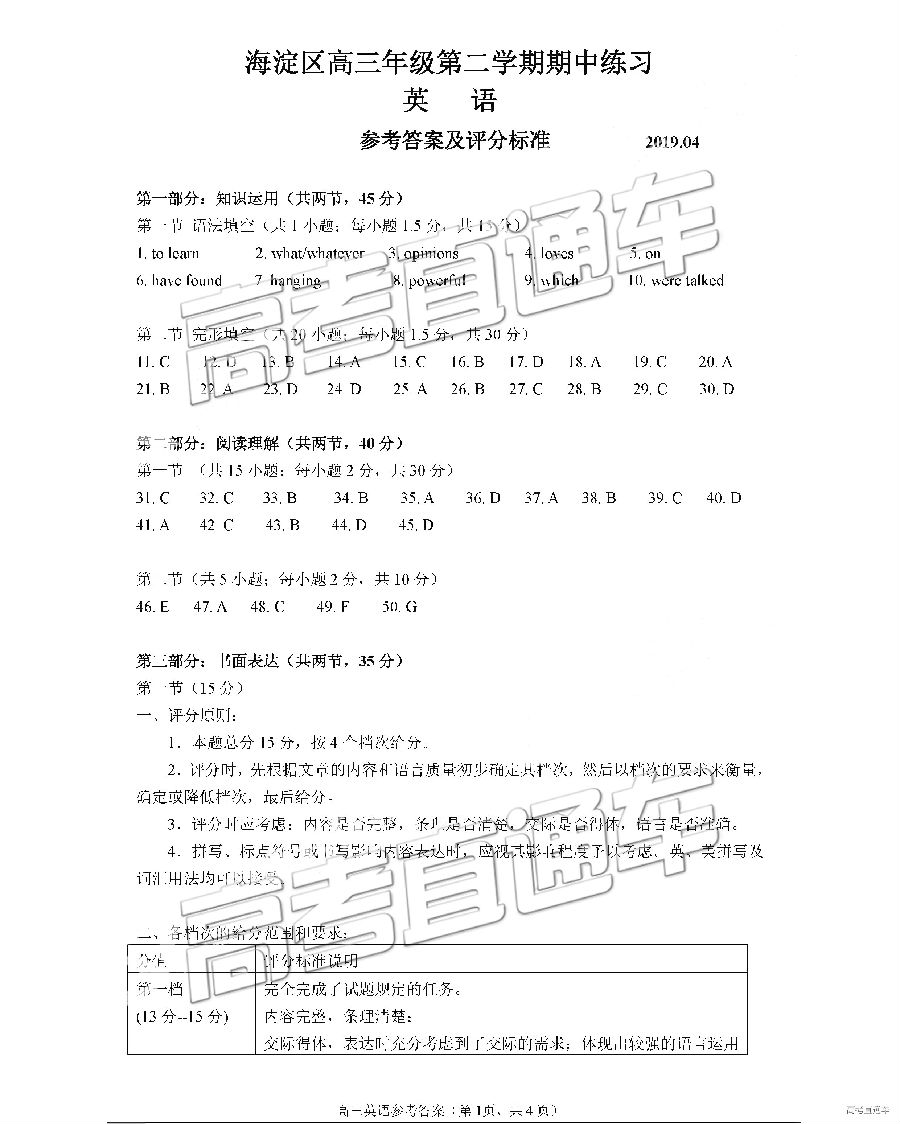 海淀区高三年级第二学期期中练习
英 语
参考答案及评分标准 2019.04
第一部分：知识运用（共两节，45分）
第一节 语法填空（共1小题；每小题1.5分，共15分）
1. to learn 2. what/whatever 3. opinions 4. loves 5. on
6. have found 7. hanging 8. powerful 9. which 10. were talked
第二节 完形填空（共20小题；每小题1.5分，共30分）
11. C 12. D 13. B 14. A 15. C 16. B 17. D 18. A 19. C 20. A
21. B 22. A 23. D 24. D 25. A 26. B 27. C 28. B 29. C 30. D
第二部分：阅读理解（共两节，40分）
第一节 （共15小题；每小题2分，共30分）
31. C 32. C 33. B 34. B 35. A 36. D 37. A 38. B 39. C 40. D
41. A 42. C 43. B 44. D 45. D
第二节（共5小题；每小题2分，共10分）
46. E 47. A 48. C 49. F 50. G
第三部分：书面表达（共两节，35分）
第一节（15分）
一、评分原则：
1．本题总分15分，按4个档次给分。
2．评分时，先根据文章的内容和语言质量初步确定其档次，然后以档次的要求来衡量，
确定或降低档次，最后给分。
3．评分时应考虑：内容是否完整，条理是否清楚，交际是否得体，语言是否准确。
4．拼写、标点符号或书写影响内容表达时，应视其影响程度予以考虑。英、美拼写及
词汇用法均可以接受。
二、各档次的给分范围和要求：
分值 评分标准说明
第一档 完全完成了试题规定的任务。
(13分--15分) 内容完整，条理清楚；
交际得体，表达时充分考虑到了交际的需求；体现出较强的语言运用
高三英语参考答案（第1页，共4页）
高考直通车
高考直通车
高考直通车